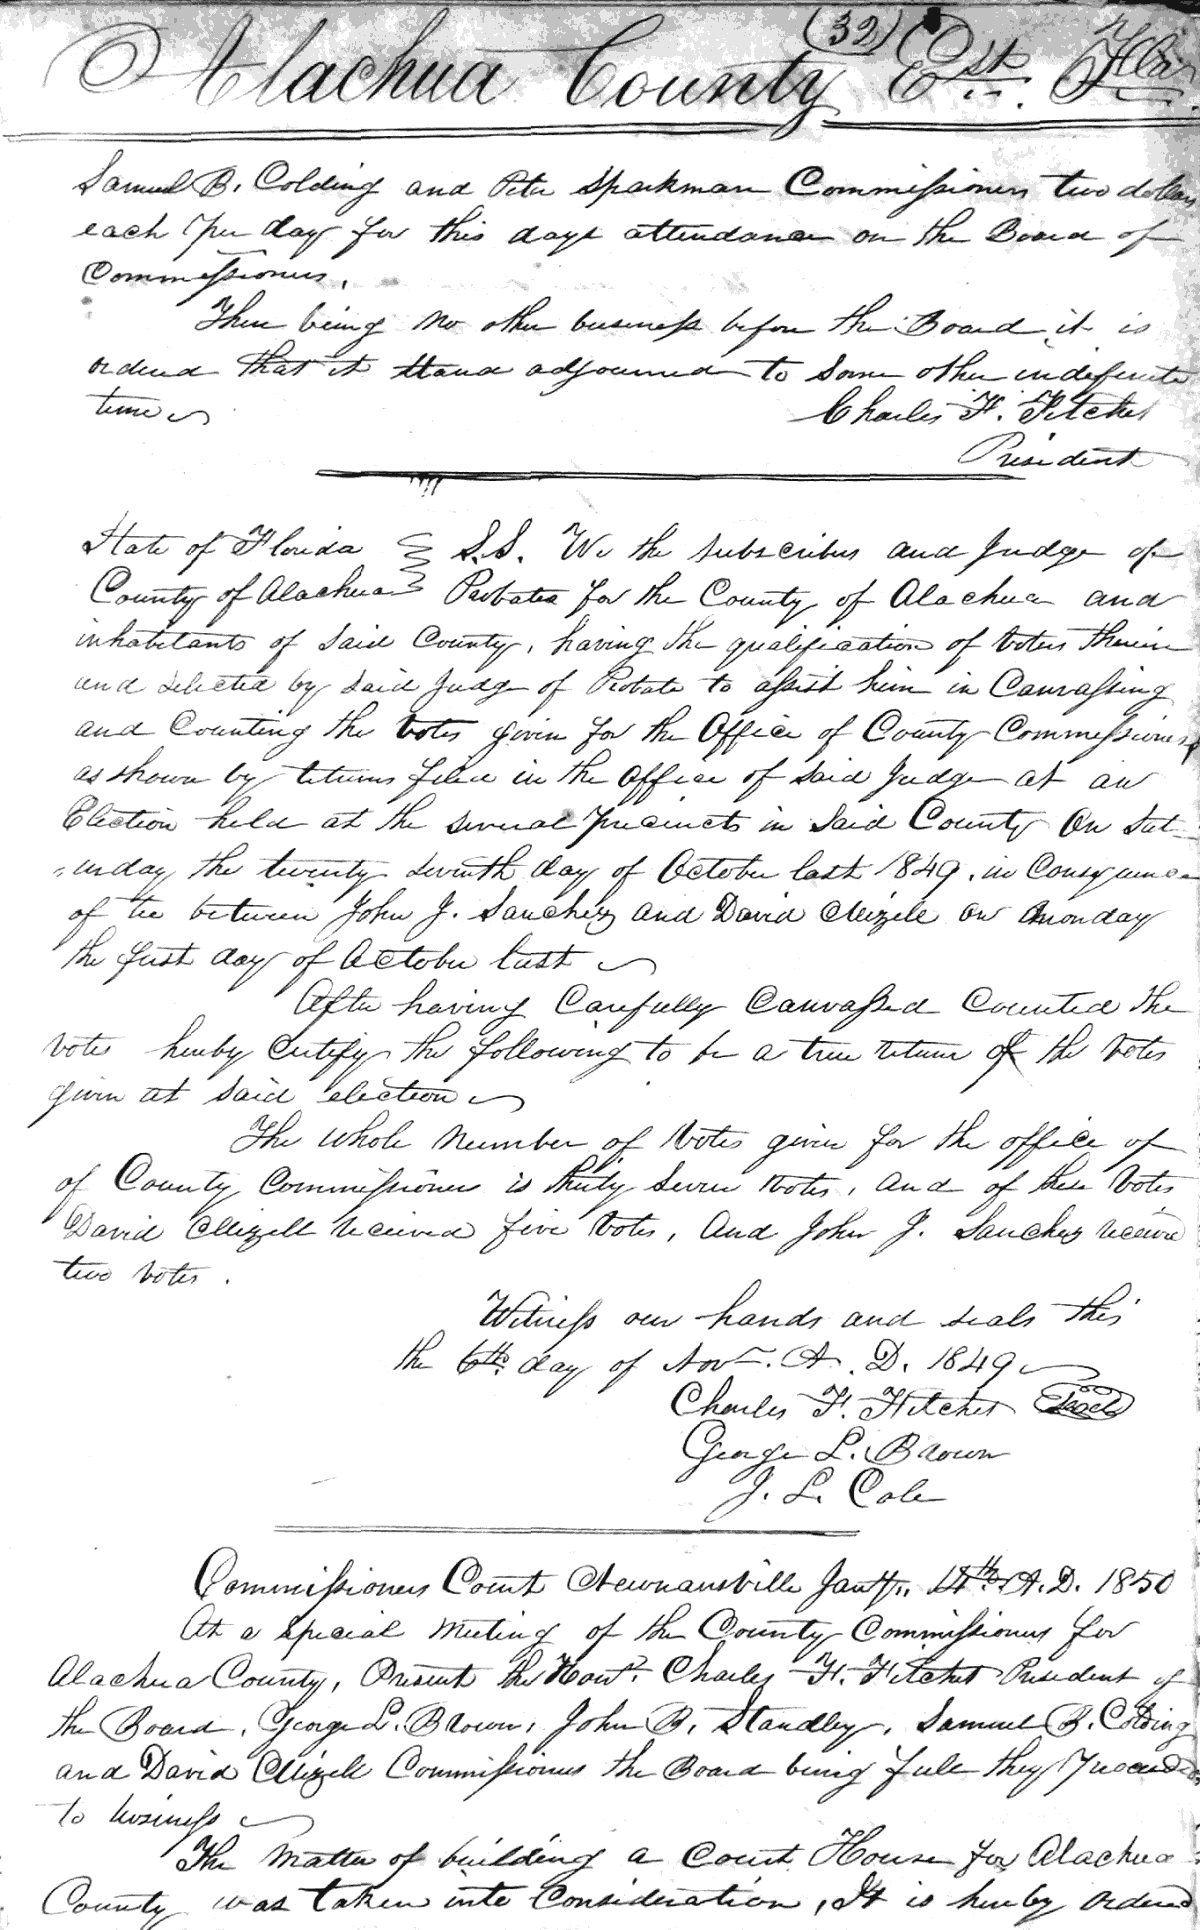 (32)
Alachua County Est. Flia.
Samuel B. Colding and Peter Sparkman Commissioners two dollars
each per day for this days attendance on the Board of
Commissioners.
There being no other business before the Board it is
ordered that it stand adjourned to some other indefinite
time
Charles F. Fitchet
President
State of Florida S.S. We the subscribers and Judge of
County of Alachua Probates for the County of Alachua and
inhabitants of said County, having the qualification of voters therein
and selected by said Judge of Probate to assist him in Canvassing
and Counting the votes given for the Office of County Commissioners
as shown by returns filed in the office of said Judge at an
Election held at the several precincts in said County On Sat-
-urday the twenty seventh day of October last 1849. in Consequence
of tie between John J. Sanchez and David Mizell on Monday
the first day of October last
After having Carefully Canvassed Counted the
votes hereby certify the following to be a true return of the votes
given at said election
The whole number of votes given for the office of
of County Commissioner is thirty seven votes, and of these votes
David Mizell received five votes, And John J. Sanchez receivd
two votes.
Witness our hands and seals this
the 6th day of Novr. A. D. 1849
Charles F. Fitchet Seal
George L. Brown
J. L. Cole
Commissioners Court Newnansville Jany. 14th. A.D. 1850
At a special meeting of the County Commissioners for
Alachua County, Present the Honl. Charles F. Fitchet President of
the Board, George L. Brown, John B. Standley, Samuel B. Colding
and David Mizell Commissioners the Board being full they proceeded
to business
The matter of building a Court House for Alachua
County was taken into Consideration, It is hereby ordered